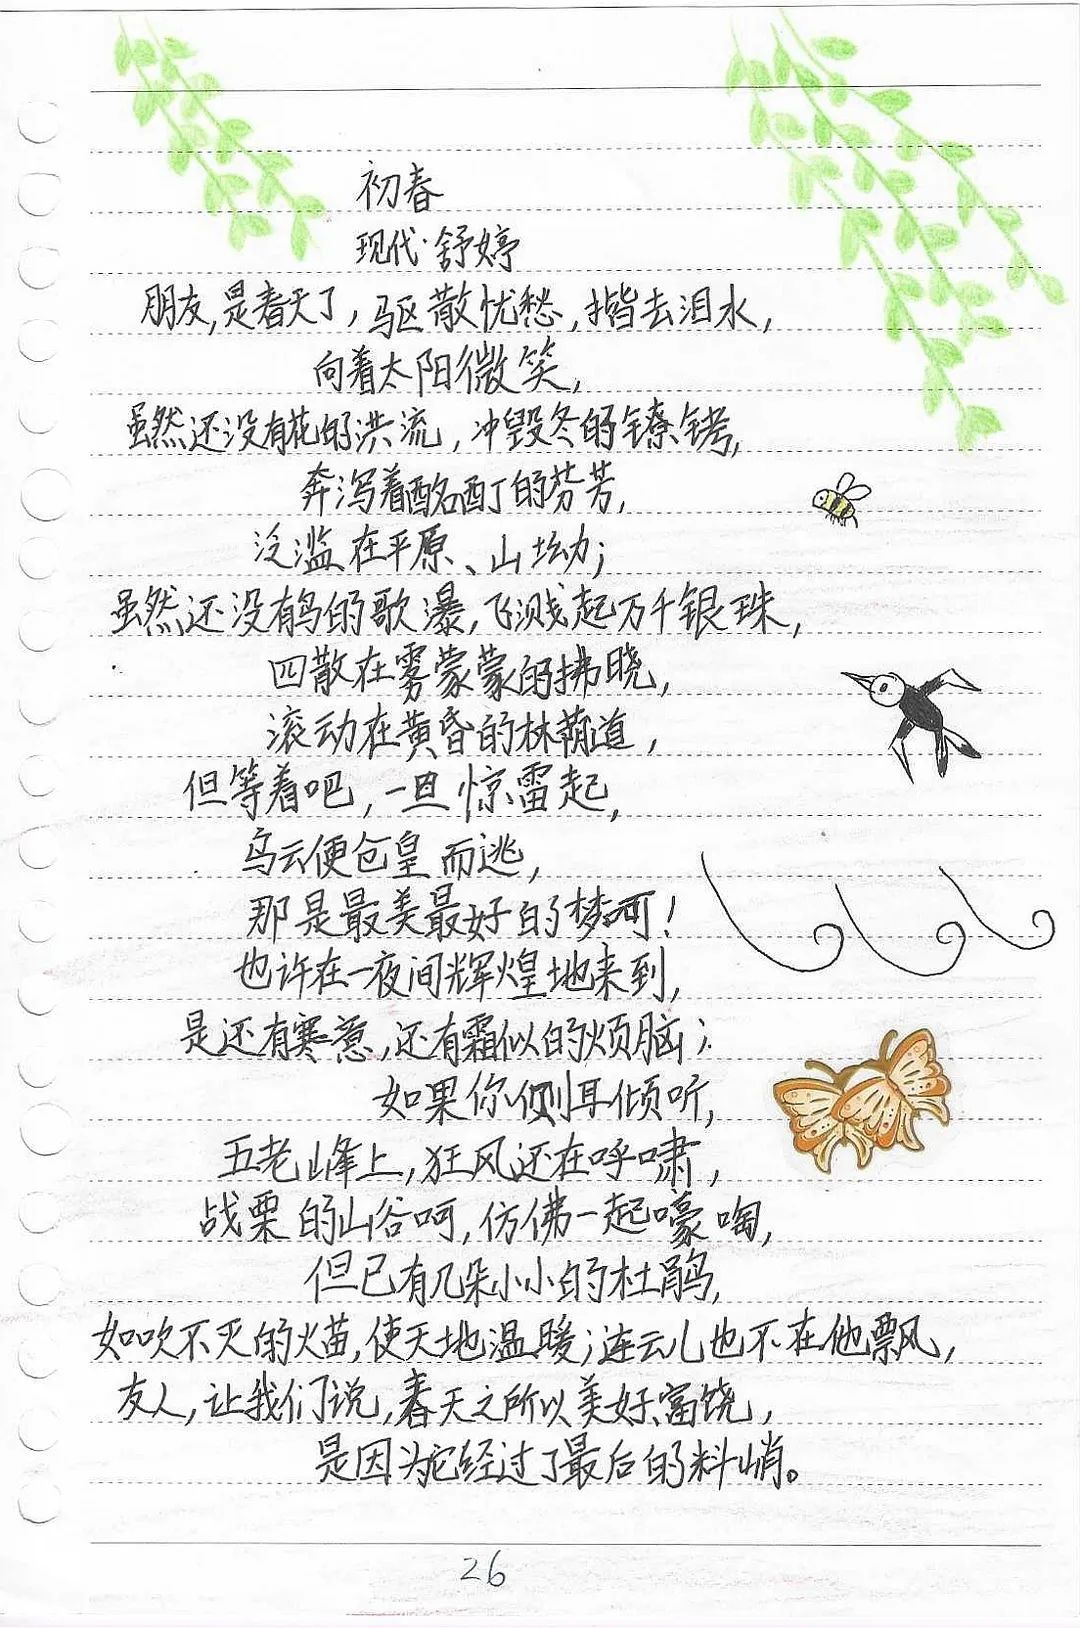 初春
现代·舒婷
朋友,是春天了,驱散忧愁,揩去泪水,
向着太阳微笑,
虽然还没有花的洪流,冲毁冬的镣铐,
奔泻着酩酊的芬芳,
泛滥在平原、山坳;
虽然还没有鸟的歌瀑,飞溅起万千银珠,
四散在雾蒙蒙的拂晓,
滚动在黄昏的林荫道,
但等着吧,一旦惊雷起,
乌云便仓皇而逃,
那是最美最好的梦呵!
也许在一夜间辉煌地来到,
是还有寒意,还有霜似的烦脑;
如果你侧耳倾听,
五老峰上,狂风还在呼啸,
战栗的山谷呵,仿佛一起嚎啕,
但已有几朵小小的杜鹃,
如吹不灭的火苗,使天地温暖;连云儿也不在他飘,
友人,让我们说,春天之所以美好富饶,
是因为它经过了最后的料峭。
26